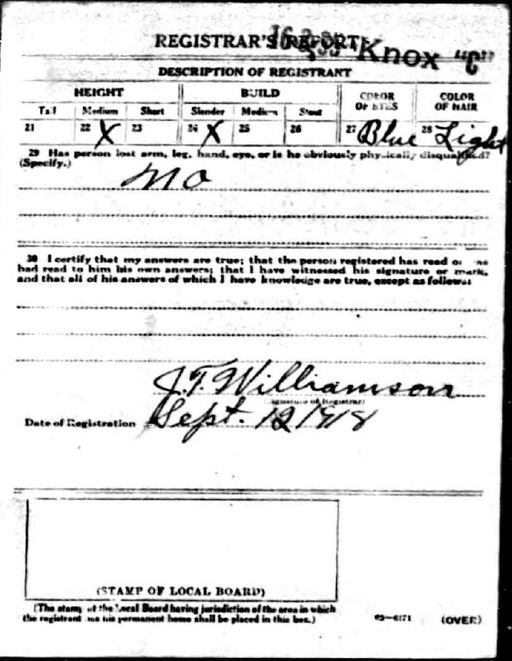 REGISTRAR'S REPORT Knox "C"
DESCRIPTION OF REGISTRANT
HEIGHT BUILD COLOR OF EYES COLOR OF HAIR
Tall Medium Short Slender Medium Stout
21 22 X 23 24 X 25 26 27 Blue 28 Light
29 Has person lost arm, leg, hand, eye, or is he obviously physically disqualified?
(Specify.) No
30 I certify that my answers are true; that the person registered has read or has
had read to him his own answers; that I have witnessed his signature or mark,
and that all of his answers of which I have knowledge are true, except as follows:
J.T. Williamson
(Signature of Registrar)
Date of Registration Sept. 12 1918
(STAMP OF LOCAL BOARD)
(The stamp of the Local Board having jurisdiction of the area in which
the registrant has his permanent home shall be placed in this box.)
03—6171 (OVER)